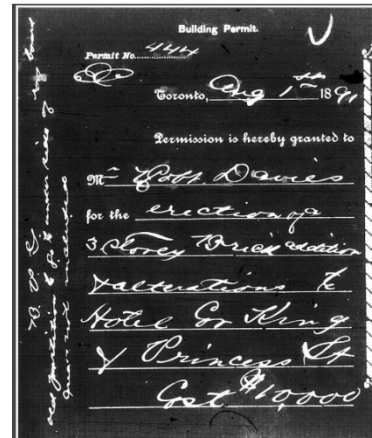 Building Permit.
Permit No. 444
Toronto, Aug 1st 1891
Permission is hereby granted to
Mr Robt. Davies
for the erection of a
3 Storey Brick addition
& alterations to
Hotel Cor King
& Princess St
Cost $10,000
old foundation
not included